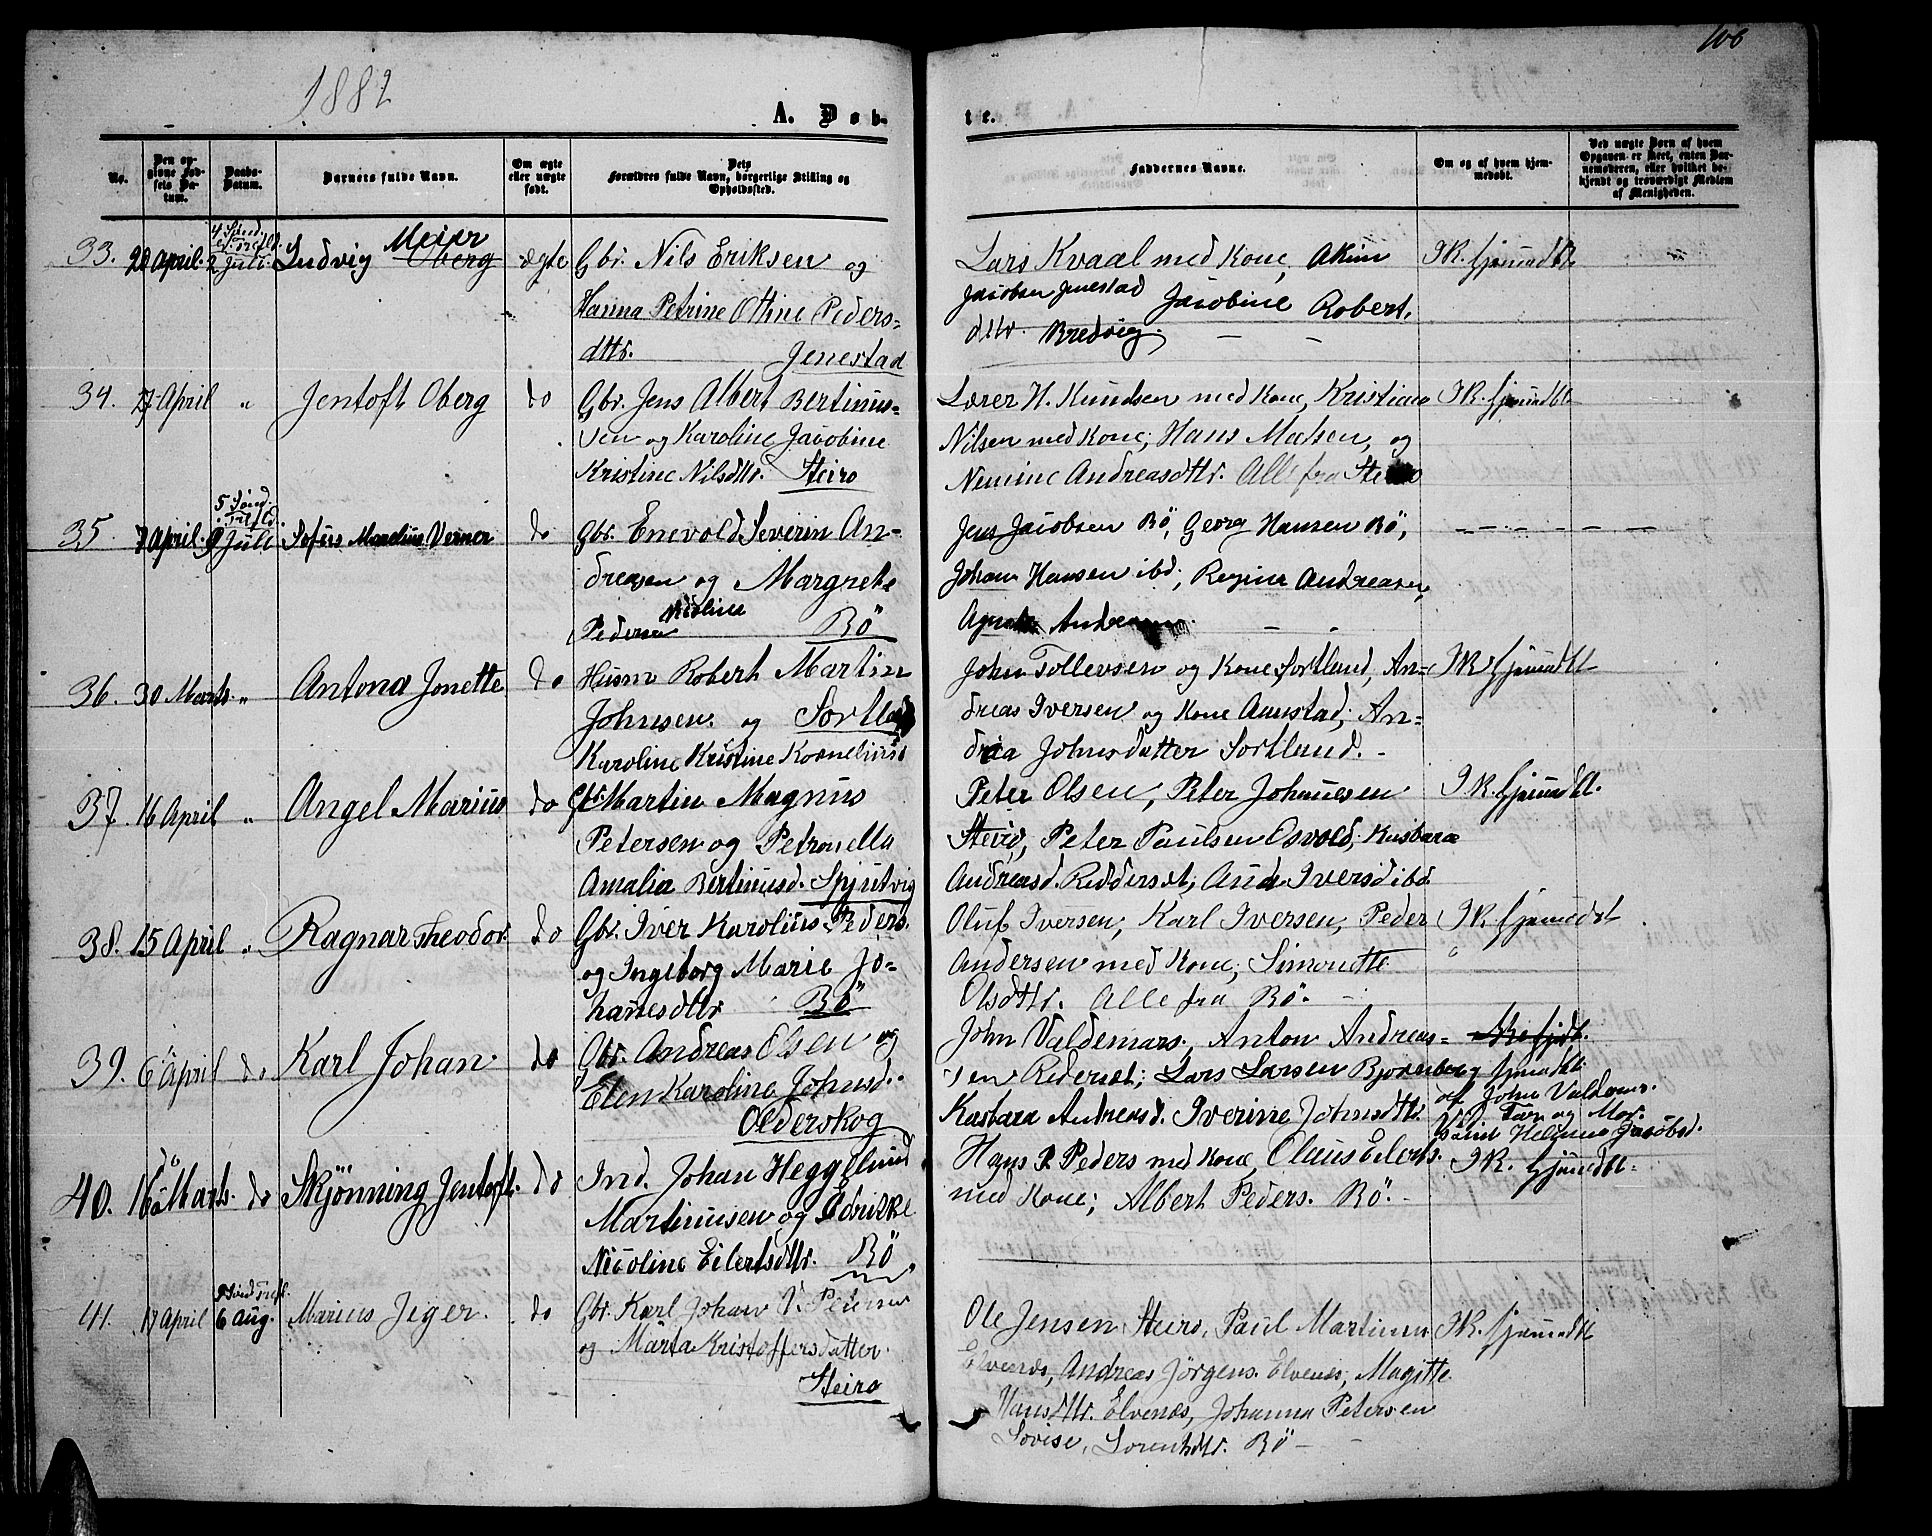 106
1882
A. Døb-
te.
No.
Den op-
givne Fød-
sels Da-
tum.
Daabs-
Datum.
Barnets fulde Navn.
Om ægte
eller uægte
født.
Dets
Forældres fulde Navn, borgerlige Stilling og
Opholdssted.
Faddernes Navne.
Om og af hvem hjem-
medøbt.
Ved uægte Børn af hvem
Opgaven er skeet, enten Bar-
nemoderen, eller hvilket be-
kjendt og troværdigt Medlem
af Menigheden.
33. 20 April. 4 Sønd. e. Trefld. 2 Juli. Ludvig Meier Oberg ægte Gbr. Nils Eriksen og
Hanna Petrine Ottine Peders-
dttr. Jenestad
Lars Kvaal med Kone, Akim
Jacobsen Jenestad Jacobine Robert.
dttr. Bredvig.
IK. hjemmedbt
34. April " Jentoft Oberg do Gbr. Jens Albert Bertinus-
sen og Karoline Jacobine
Kristine Nilsdttr. Steiro
Lærer H. Knudsen med Kone, Kristian
Nilsen med Kone; Hans Madsen, og
Nemine Andreasdttr. Alle fra Steiro
IK. hjemmedbt
35. 7 April. 5 Sønd. e. Trefld. 9 Juli Sofus Marelius Verner do Gbr. Enevold Severin An-
dreasen og Margrete
Nicoline
Pedersen Bö
Jens Jacobsen Bö, Georg Hansen Bö,
Johan Hansen ibd., Regine Andreasen,
Andreasen
36. 30 Marts " Antona Jonette do Husm Robert Martin
Johnsen. og Sortland
Karoline Kristine Kornelius
John Tollevsen og Kone Sortland, An-
dreas Iversen og Kone Aunstad; An-
drea Johnsdatter Sortland.
IK. hjemmedbt
37. 16 April " Angel Marius do Gbr. Martin Magnus
Petersen og Petronella
Amalia Bertinusd. Spjutvig
Peter Olsen, Peter Johannesen
Steiro, Peter Paulsen Osvold, Kasbara
Andreasd. Rederset; Ana Iversd ibd.
IK. hjemmedbt.
38. 15 April " Ragnar Theodor. do Gbr. Iver Karolius Peders.
og Ingeborg Marie Jo-
hannesdttr Bö
Oluf Iversen, Karl Iversen, Peder
Andersen med Kone; Simonette
Olsdttr. Alle fra Bö.
IK. hjemmedbt
39. 6 April do Karl Johan do Gbr. Andreas Olsen og
Elen Karoline Johnsd.
Olderskog
John Valdemars., Anton Andreas-
sen Rederset; Lars Larsen Bjornberg
Kasbara Andreasd. Iverine Johnsdttr.
hjemmedbt
af John Valdems.
Far og Mor.
40. 16 Marts. do Skjönning Jentoft. do Ind. Johan Heggelund
Martinusen og Edvikke
Nicoline Eilertsdttr. Bö
Hans P. Peders med Kone, Olaus Eilerts.
med Kone; Albert Peders. Bö.
IK. hjemmedbt
41. 17 April 6 Aug. Marius Jeger. do Gbr. Karl Johan V. Petersen
og Märta Kristoffersdatter.
Steiro
Ole Jensen Steiro, Paul Martinus
Elvenæs, Andreas Jörgens. Elvenæs, Magitte
Hansdttr. Elvenæs, Johanna Petersen
Lovise Sorentsdttr. Bö
IK. hjemmedbt